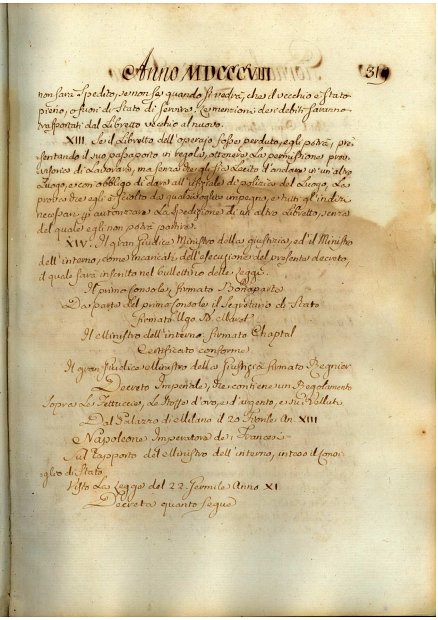 Anno MDCCCVIII 31
non sarà spedito, se non se quando si vedrà, che il vecchio è stato
pieno, o fuori di stato di servire. Le menzioni dei debiti saranno
trasportati dal Libretto vecchio al nuovo.
XIII. Se il Libretto dell'operajo fosse perduto, egli potrà, pre
sentando il suo passaporto in regola, ottenere la permissione prov
visoria di Lavorare, ma senza che gli sia Lecito d'andare in un'altro
Luogo, e con obbligo di dare all'uffiziale di polizia del Luogo, La
prova che egli è sciolto da qualunque impegno, e tutti gl'indizi
necessarj p autorizzare La spedizione di un altro Libretto, senza
del quale egli non potrà partire.
XIV. Il gran Giudice Ministro della giustizia, ed il Ministro
dell'interno, sono incaricati dell'esecuzione del presente decreto,
il quale sarà inserito nel bullettino delle Leggi.
Il primo console, firmato Bonaparte
Da parte del primo console il Segretario di Stato
firmato Ugo B. Maret
Il Ministro dell'interno firmato Chaptal
Certificato conforme.
Il gran Giudice Ministro della Giustizia firmato Regnier
Decreto Imperiale, che contiene un Regolamento
sopra Le Fettuccie, Le Stoffe d'oro, e d'argento, e sui Velluti
Dal Palazzo di Milano il 20 Fiorile An. XIII
Napoleone Imperatore de i Francesi
Sul rapporto del Ministro dell'interno, inteso il Consi
eglio di Stato
Visto La Legge del 22 Germile Anno XI
Decreta quanto segue